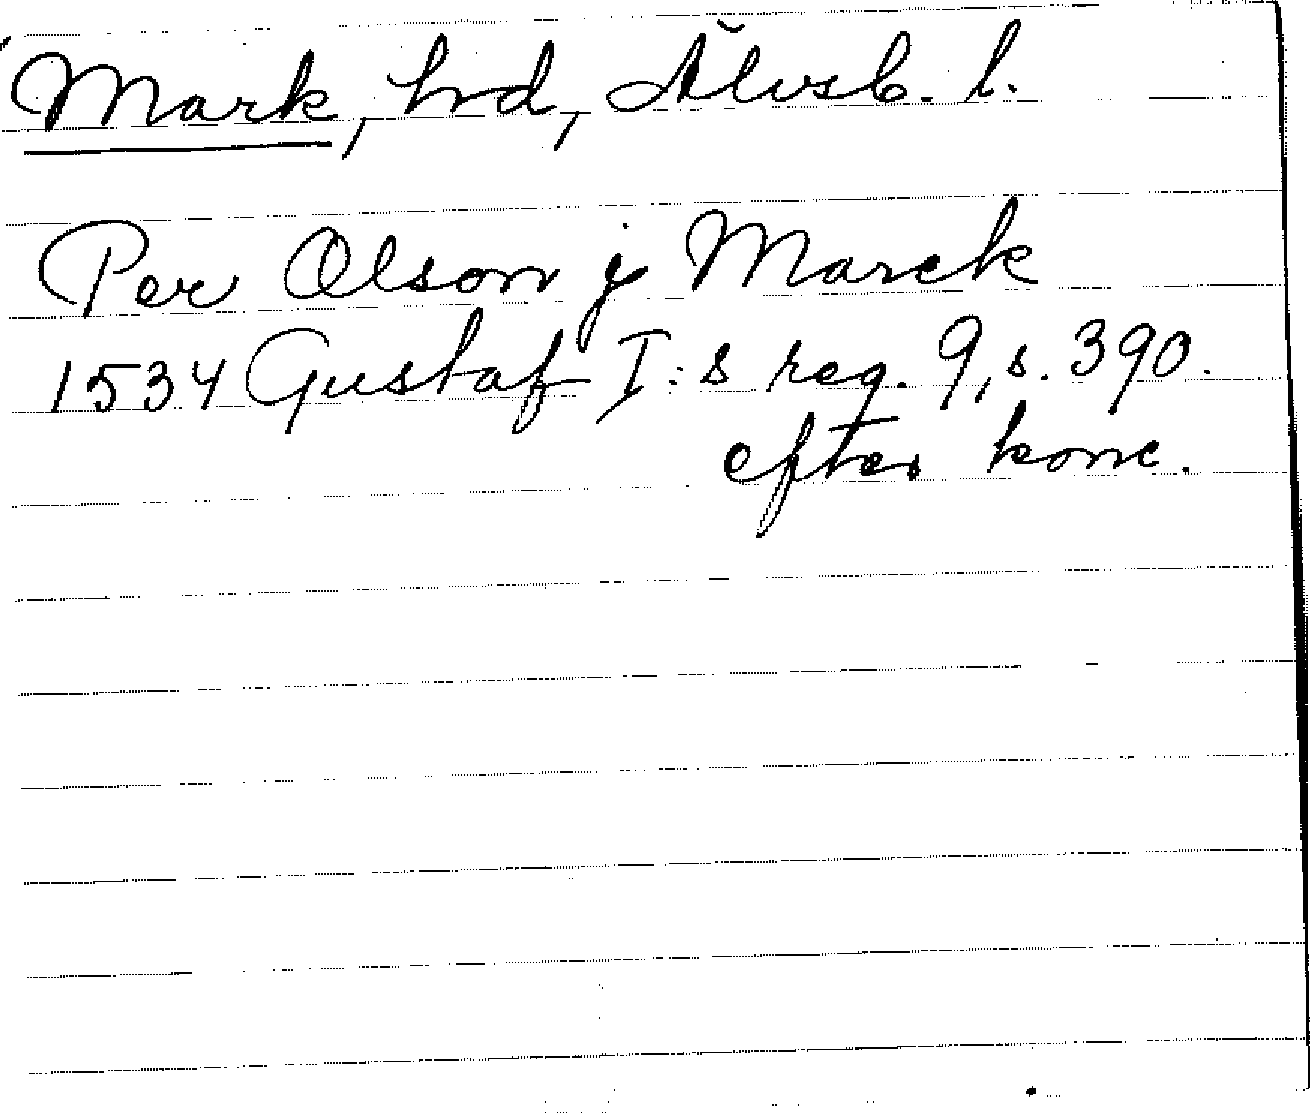 Mark, hrd, Älvsb. l.
Per Olson j Marck
1534 Gustaf I:s reg. 9, s. 390.
efter konc.